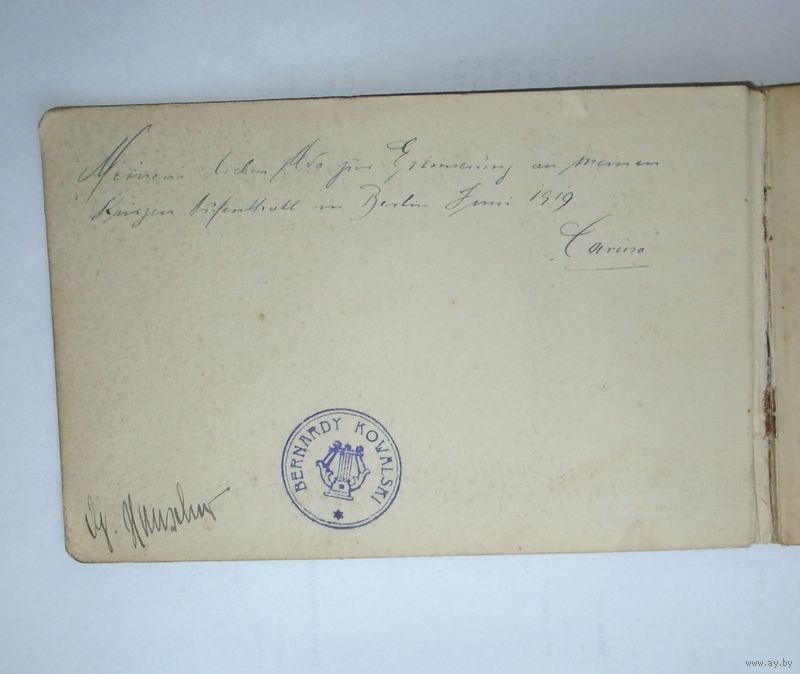 Meinem lieben Uso zur Erinnerung an meinen
kurzen Aufenthalt in Berlin Juni 1919
Caruso
BERNARDY KOWALSKI
www.ay.by